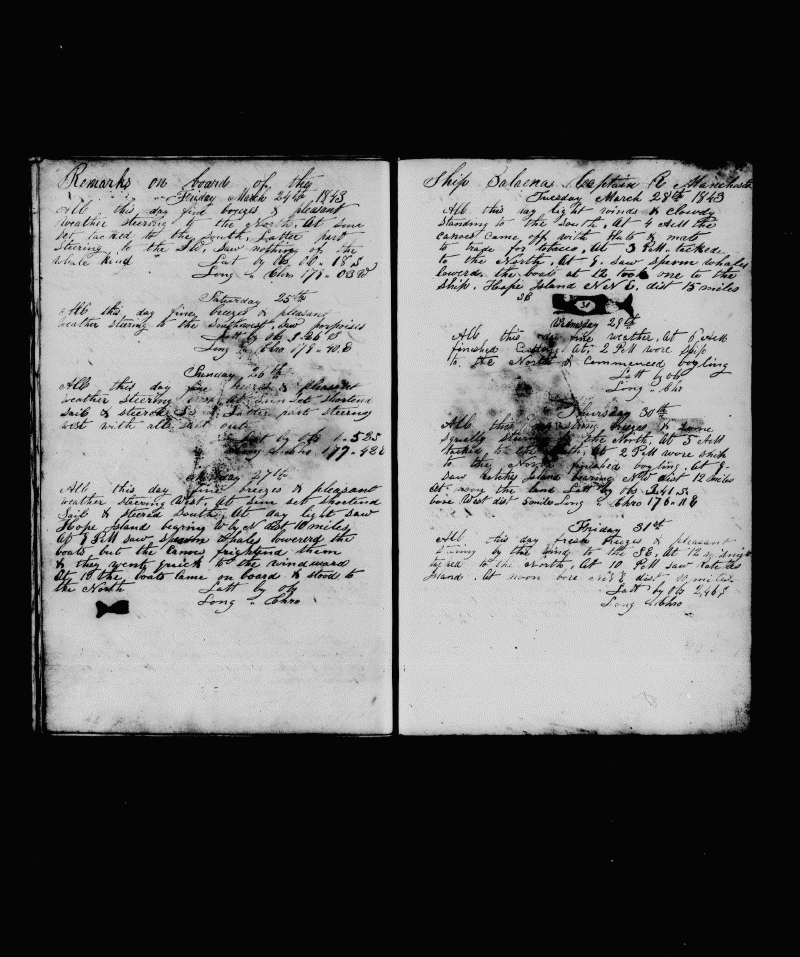 Remarks on board of the
Friday March 24th 1843
All this day fine breezes & pleasant
weather steering to the North, At sun
set tacked to the South, Latter part
steering to the SW, Saw nothing of the
whale kind Latt by Obs 00"18 S
Long " Chro 178"03 W
Saturday 25th
All this day fine breezes & pleasant
weather steering to the Southwest, Saw porpoises
Latt by Obs 26 S
Long " Chro 178"40 E
Sunday 26th
All this day fine breezes & pleasant
weather steering West at Sun Set shortend
Sail & steered Latter part steering
west with all sail out
Latt by Obs 1"52 S
Long " Chro 177"48 E
Monday 27th
All this day fine breezes & pleasant
weather steering West, At Sun set shortend
Sail & steered South, At day light saw
Hope Island bearing W by N dist 10 miles
At 8 PM saw sperm whales lowererd the
boats but the Canoes frightend them
& they went quick to the windward
At 10 the, boats came on board & stood to
the North Latt by Obs
Long " Chro
Ship Balaena Captain R Manchester
Tuesday March 28th 1843
All this day light winds & cloudy
standing to the South, At 4 AM the
canoes came off with Hats & mats
to trade for tobacco, At 3 PM, tacked
to the North, At 9, saw sperm whales
lowerd the boats at 12 took one to the
ship, Hope Island NNE, dist 15 miles
SB
31
Wednsday 29th
All this day fine weather, At 6 AM
finished Cutting At, 2 PM wore ship
to, the North & Commenced boyling
Latt by Obs
Long " Chro
Thursday 30th
All this day strong breezes & some
squally steering by the North, At 5 AM
tacked to the South, At 2 PM wore ship
to the North finished boyling, At 9
saw Rotches Island bearing NW dist 12 miles
At noon the land Latt by Obs 2"41 S
bore West dist 5 miles Long " Chro 176"11 E
Friday 31st
All, this day fresh breezes & pleasant
by the wind to the SE, At 12 midnight
tacked to the North, At 10 PM saw Rotches
Island. At noon bore dist 10 miles
Latt by Obs 2,46 S
Long " Chro